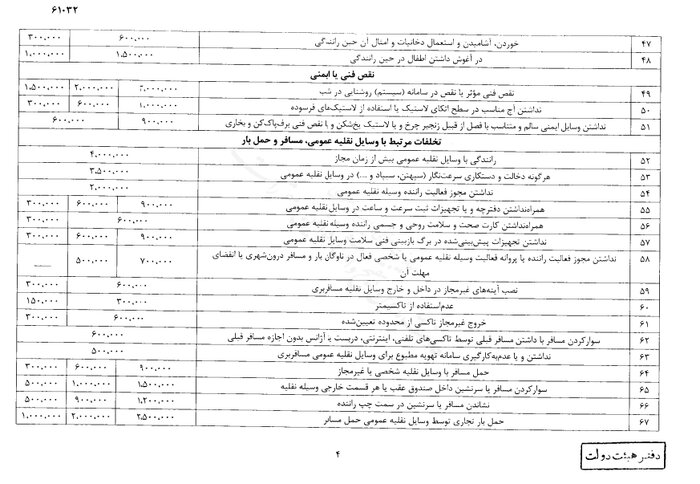 ۶۱۰۳۲
۴۷ خوردن، آشامیدن و استعمال دخانیات و امثال آن حین رانندگی ۶۰۰.۰۰۰ ۳۰۰.۰۰۰
۴۸ در آغوش داشتن اطفال در حین رانندگی ۱.۵۰۰.۰۰۰ ۱.۰۰۰.۰۰۰
نقص فنی یا ایمنی
۴۹ نقص فنی مؤثر یا نقص در سامانه (سیستم) روشنایی در شب ۳.۰۰۰.۰۰۰ ۲.۰۰۰.۰۰۰ ۱.۵۰۰.۰۰۰
۵۰ نداشتن آج مناسب در سطح اتکای لاستیک یا استفاده از لاستیک‌های فرسوده ۱.۰۰۰.۰۰۰ ۶۰۰.۰۰۰ ۳۰۰.۰۰۰
۵۱ نداشتن وسایل ایمنی سالم و متناسب با فصل از قبیل زنجیر چرخ و یا لاستیک یخ‌شکن و یا نقص فنی برف‌پاک‌کن و بخاری ۹۰۰.۰۰۰ ۶۰۰.۰۰۰
تخلفات مرتبط با وسایل نقلیه عمومی، مسافر و حمل بار
۵۲ رانندگی با وسایل نقلیه عمومی بیش از زمان مجاز ۴.۰۰۰.۰۰۰
۵۳ هرگونه دخالت و دستکاری سرعت‌نگار (سپهتن، سیباد و ...) در وسایل نقلیه عمومی ۳.۵۰۰.۰۰۰
۵۴ نداشتن مجوز فعالیت راننده وسیله نقلیه عمومی ۲.۰۰۰.۰۰۰
۵۵ همراه‌نداشتن دفترچه و یا تجهیزات ثبت سرعت و ساعت در وسایل نقلیه عمومی ۹۰۰.۰۰۰ ۶۰۰.۰۰۰ ۳۰۰.۰۰۰
۵۶ همراه‌نداشتن کارت صحت و سلامت روحی و جسمی راننده وسیله نقلیه عمومی ۶۰۰.۰۰۰ ۳۰۰.۰۰۰
۵۷ نداشتن تجهیزات پیش‌بینی‌شده در برگ بازبینی فنی سلامت وسایل نقلیه عمومی ۹۰۰.۰۰۰ ۶۰۰.۰۰۰ ۳۰۰.۰۰۰
۵۸ نداشتن مجوز فعالیت راننده یا پروانه فعالیت وسیله نقلیه عمومی یا شخصی فعال در ناوگان بار و مسافر درون‌شهری یا انقضای ۷۰۰.۰۰۰ ۵۰۰.۰۰۰ ــــ
مهلت آن
۵۹ نصب آینه‌های غیرمجاز در داخل و خارج وسایل نقلیه مسافربری ۶۰۰.۰۰۰ ۳۰۰.۰۰۰
۶۰ عدم‌استفاده از تاکسیمتر ۳۰۰.۰۰۰ ۱۵۰.۰۰۰
۶۱ خروج غیرمجاز تاکسی از محدوده تعیین‌شده ۶۰۰.۰۰۰ ۳۰۰.۰۰۰
۶۲ سوارکردن مسافر با داشتن مسافر قبلی توسط تاکسی‌های تلفنی، اینترنتی، دربست یا آژانس بدون اجازه مسافر قبلی ۶۰۰.۰۰۰
۶۳ نداشتن و یا عدم‌به‌کارگیری سامانه تهویه مطبوع برای وسایل نقلیه عمومی مسافربری ۵۰۰.۰۰۰
۶۴ حمل مسافر با وسایل نقلیه شخصی یا غیرمجاز ۹۰۰.۰۰۰ ۶۰۰.۰۰۰ ۳۰۰.۰۰۰
۶۵ سوارکردن مسافر یا سرنشین داخل صندوق عقب یا هر قسمت خارجی وسیله نقلیه ۱.۵۰۰.۰۰۰ ۱.۰۰۰.۰۰۰ ۵۰۰.۰۰۰
۶۶ نشاندن مسافر یا سرنشین در سمت چپ راننده ۱.۲۰۰.۰۰۰ ۹۰۰.۰۰۰ ۵۰۰.۰۰۰
۶۷ حمل بار تجاری توسط وسایل نقلیه عمومی حمل مسافر ۲.۵۰۰.۰۰۰ ۲.۰۰۰.۰۰۰ ۱.۰۰۰.۰۰۰
۴
دفتر هیئت دولت